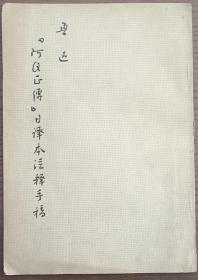 鲁迅
《阿Q正傳》日譯本注釋手稿